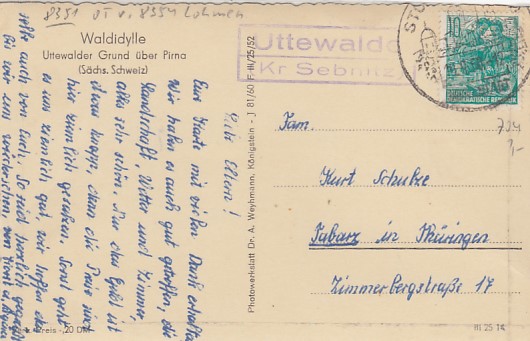 8351 OT v. 8354 Lohmen
Waldidylle
Uttewalder Grund über Pirna
(Sächs. Schweiz)
Uttewalde
Kr Sebnitz
10
DEUTSCHE
DEMOKRATISCHE REPUBLIK
Liebe Eltern!
Eure Karte mit vielen Dank erhalten
Wir haben es auch gut getroffen, die
Landschaft, Wetter und Zimmer,
alles sehr schön. Nur das Geld ist
etwas knapp, denn die Preise sind
hier ziemlich gesalzen. Sonst geht
es uns ziemlich gut wir hoffen das
selbe auch von Euch. So seid herzlich gegrüßt
Bis wir uns wiedersehen, von
Photowerkstatt Dr. A. Weyhmann, Königstein - J 81/60 F. III/25/52
Fam.
Kurt Schulze
Tabarz in Thüringen
Zimmerbergstraße 17
Preis -,20 DM
III 25 14